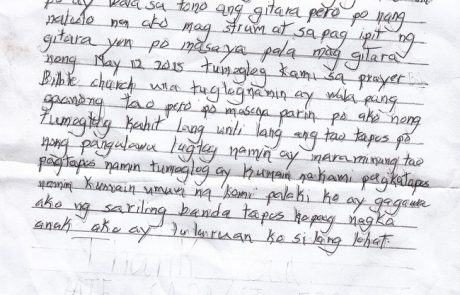 po ay wala sa tono ang gitara pero po nang
natuto na ako mag strum at sa pag ipit ng
gitara yun po masaya pala mag gitara
nong May 12 2015 tumogtog kami sa prayer
Bible church una tugtog namin ay wala pang
gaanong tao pero po masaya parin po ako nong
tumogtog kahit lang unti lang ang tao tapos po
nong pangalawa tugtog namin ay marami nang tao
pagtapos namin tumogtog ay kumain na kami pagkatapos
namin kumain umuwi na kami palaki ko ay gagawa
ako ng sariling banda tapos kapag nagka
anak ako ay tuturuan ko silang lahat.